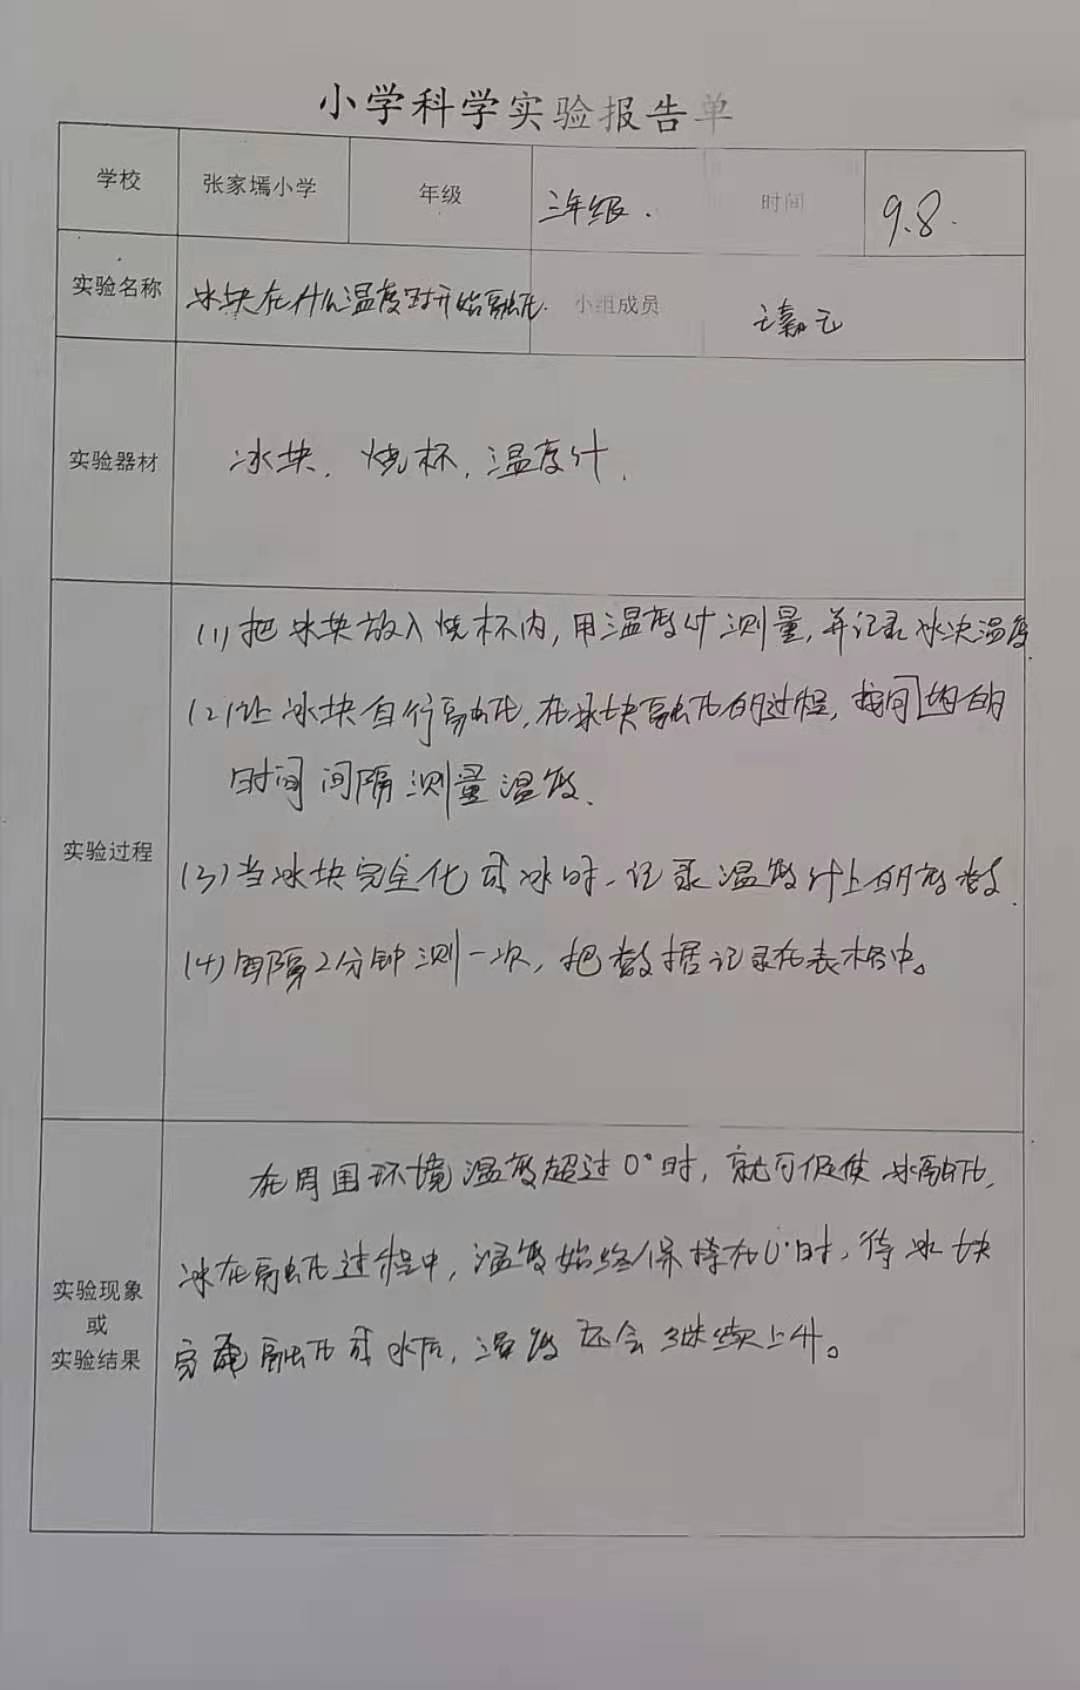 小学科学实验报告单
学校 张家墕小学 年级 三年级. 时间 9.8.
实验名称 冰块在什么温度时开始融化. 小组成员
实验器材 冰块. 烧杯, 温度计.
实验过程
(1)把冰块放入烧杯内, 用温度计测量, 并记录冰块温度.
(2)让冰块自行融化, 在冰块融化的过程, 按同均的
时间间隔测量温度.
(3)当冰块完全化成冰时, 记录温度计上的度数.
(4)每隔2分钟测一次, 把数据记录在表格中。
实验现象
或
实验结果
在周围环境温度超过0°时, 就可促使冰融化,
冰在融化过程中, 温度始终保持在0°时, 待冰块
完全融化成水后, 温度还会继续上升。